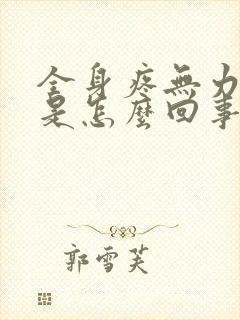 全身疼無力
是怎麼回事
郭雪芙